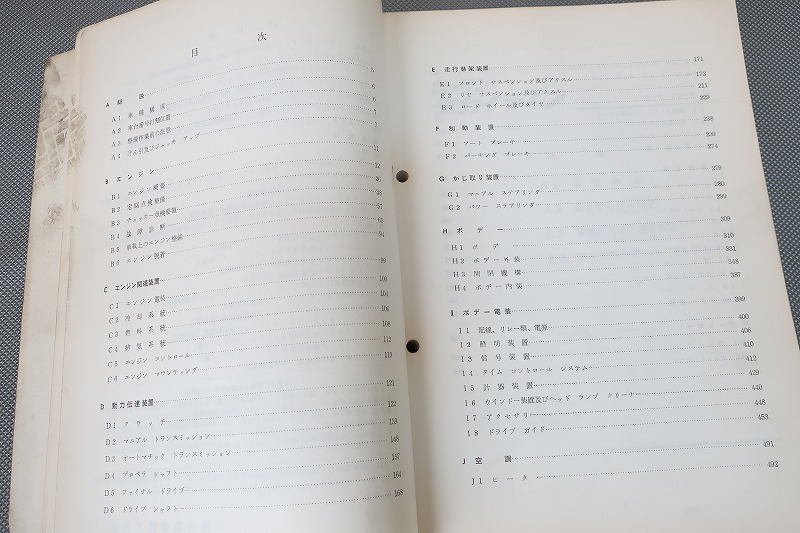 目次
A 総説 5
A1 車輛構成 6
A2 車台番号打刻位置 6
A3 整備作業前の注意 7
A4 けん引及びジャッキ アップ 7
B エンジン 11
B1 エンジン概要 12
B2 定期点検整備 26
B3 チェッカー点検整備 38
B4 故障診断 57
B5 車載上のエンジン整備 65
B6 エンジン脱着 94
C エンジン関連装置 99
C1 エンジン電装 100
C2 冷却系統 104
C3 燃料系統 106
C4 排気系統 108
C5 エンジン コントロール 112
C6 エンジン マウンティング 119
D 動力伝達装置 121
D1 クラッチ 122
D2 マニアル トランスミッション 128
D3 オートマチック トランスミッション 148
D4 プロペラ シャフト 157
D5 ファイナル ドライブ 164
D6 ドライブ シャフト 168
E 走行懸架装置 171
E1 フロント サスペンション及びアクスル 173
E2 リヤ サスペンション及びアクスル 211
E3 ロード ホイール及びタイヤ 229
F 制動装置 238
F1 フート ブレーキ 239
F2 パーキング ブレーキ 274
G かじ取り装置 279
G1 マニアル ステアリング 280
G2 パワー ステアリング 299
H ボデー 309
H1 ボデー 310
H2 ボデー外装 331
H3 開閉機構 348
H4 ボデー内装 387
I ボデー電装 399
I1 配線、リレー類、電源 400
I2 照明装置 406
I3 信号装置 410
I4 タイム コントロール システム 412
I5 計器装置 429
I6 ウインドー装置及びヘッド ランプ クリーナー 440
I7 アクセサリー 448
I8 ドライブ ガイド 453
J 空調 491
J1 ヒーター 492